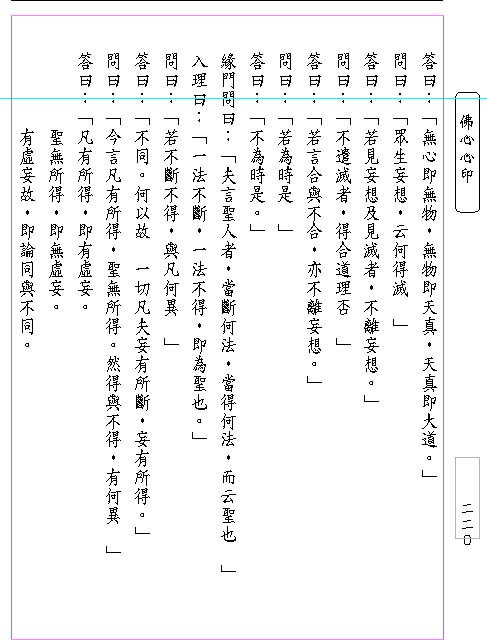 佛心心印
答曰：「無心即無物，無物即天真，天真即大道。」
問曰：「眾生妄想，云何得滅　」
答曰：「若見妄想及見滅者，不離妄想。」
問曰：「不遣滅者，得合道理否　」
答曰：「若言合與不合，亦不離妄想。」
問曰：「若為時是　」
答曰：「不為時是。」
緣門問曰：「夫言聖人者，當斷何法，當得何法，而云聖也　」
入理曰：「一法不斷，一法不得，即為聖也。」
問曰：「若不斷不得，與凡何異　」
答曰：「不同。何以故　一切凡夫妄有所斷，妄有所得。」
問曰：「今言凡有所得，聖無所得。然得與不得，有何異　」
答曰：「凡有所得，即有虛妄。
聖無所得，即無虛妄。
有虛妄故，即論同與不同。
二二０